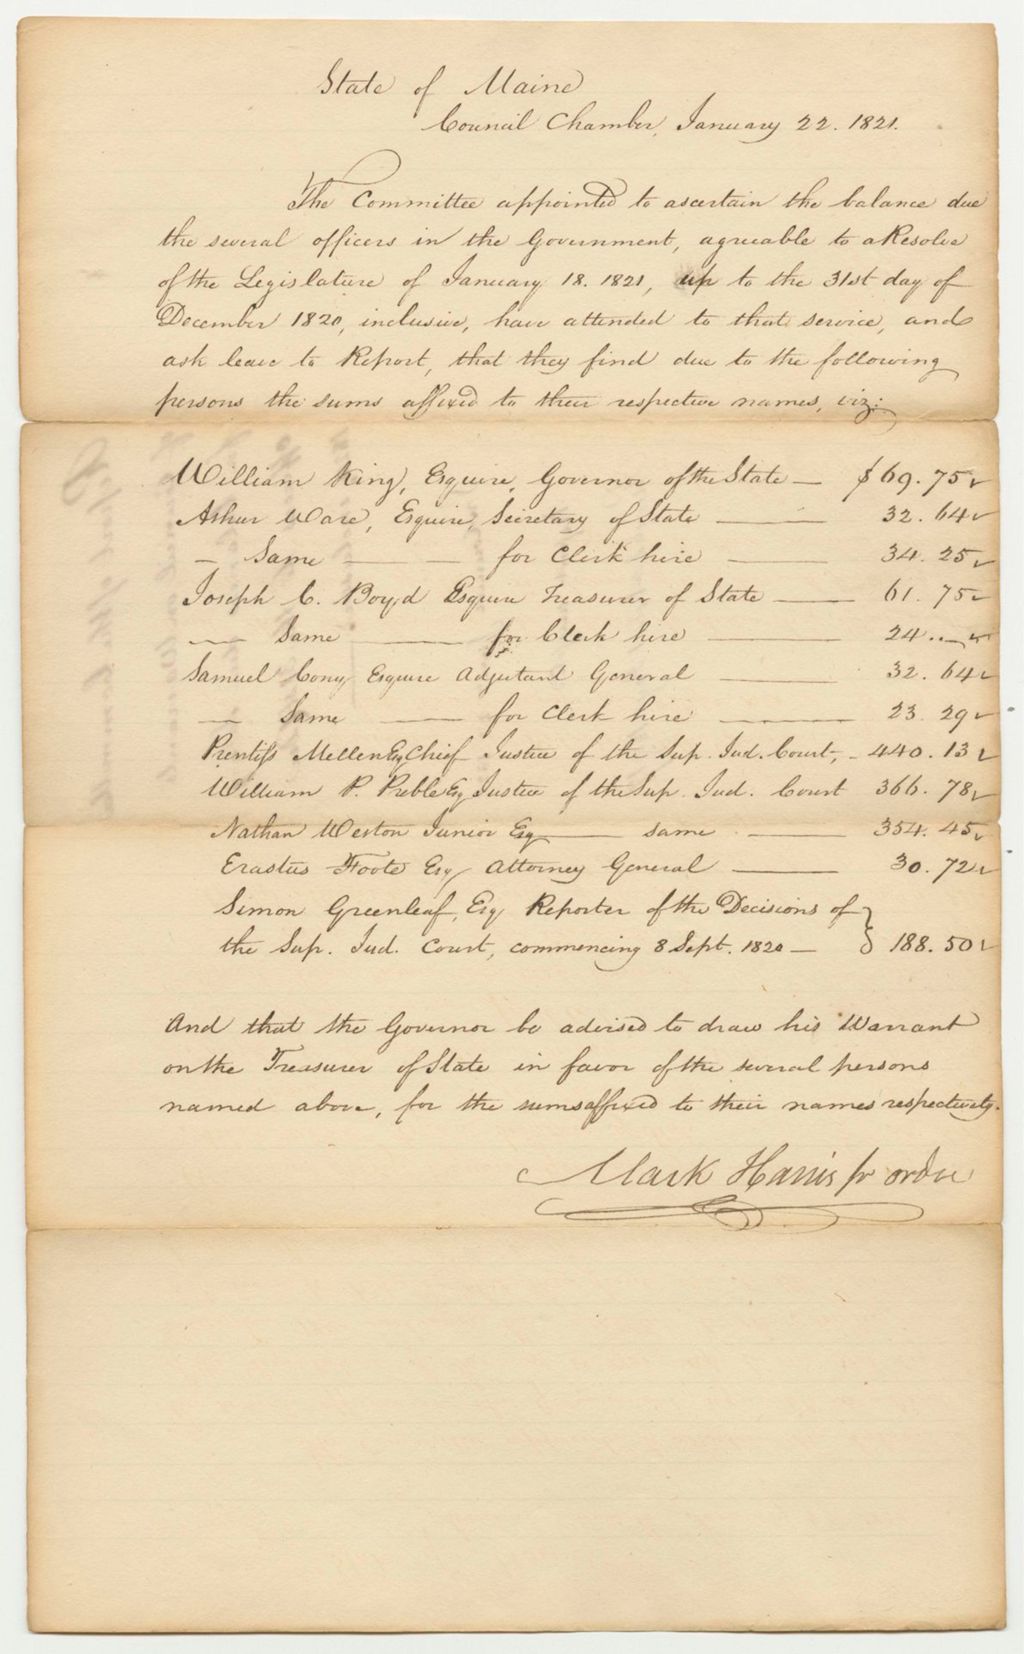 State of Maine
Council Chamber, January 22. 1821.
The Committee appointed to ascertain the balance due
the several officers in the Government, agreeable to a Resolve
of the Legislature of January 18. 1821, up to the 31st day of
December 1820, inclusive, have attended to that service, and
ask leave to Report, that they find due to the following
persons the sums affixed to their respective names, viz:
William King, Esquire, Governor of the State — $69.75
Ashur Ware, Esquire, Secretary of State — 32.64
— Same — for Clerk hire — 34.25
Joseph C. Boyd Esquire Treasurer of State — 61.75
— Same — for Clerk hire — 24..—
Samuel Cony Esquire Adjutant General — 32.64
— Same — for Clerk hire — 23.29
Prentiss Mellen Esq Chief Justice of the Sup. Jud. Court, - 440.13
William P. Preble Esq Justice of the Sup. Jud. Court 366.78
Nathan Weston Junior Esq — same — 354.45
Erastus Foote Esq Attorney General — 30.72
Simon Greenleaf, Esq Reporter of the Decisions of
the Sup. Jud. Court, commencing 8 Sept. 1820 — } 188.50
And that the Governor be advised to draw his Warrant
on the Treasurer of State in favor of the several persons
named above, for the sums affixed to their names respectively.
Mark Harris pr order